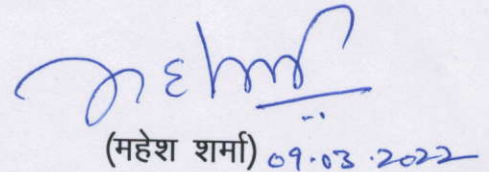 (महेश शर्मा) 09.03.2022